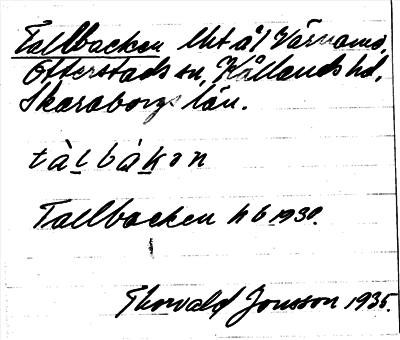 Tallbacken lht å/ Värnamo,
Otterstads sn, Kållands hd,
Skaraborgs län.
tàl bàkɔn
Tallbacken hb 1930.
Thorvald Jonsson 1935.